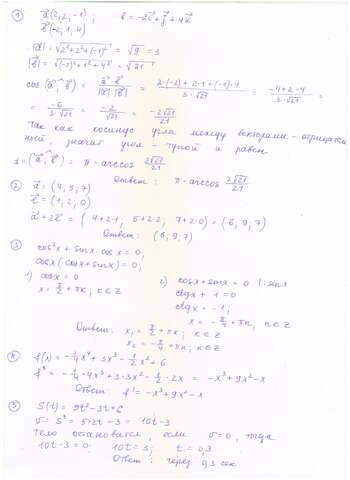 ① a⃗(2; 2; -1) ; b = -2i⃗ + j⃗ + 4k⃗
b⃗(-2; 1; 4)
|a⃗| = √(2² + 2² + (-1)²) = √9 = 3
|b⃗| = √((-2)² + 1² + 4²) = √21
cos(a⃗^b⃗) = a⃗·b⃗ / |a⃗|·|b⃗| = (2·(-2) + 2·1 + (-1)·4) / 3·√21 = (-4+2-4) / 3·√21 =
= -6 / 3·√21 = -2 / √21 = -2√21 / 21
Так как косинус угла между векторами - отрицатель
ный, значит угол - тупой и равен
α = (a⃗^b⃗) = π - arccos 2√21/21
Ответ: π - arccos 2√21/21
② a⃗ = (4; 5; 7)
b⃗ = (1; 2; 0)
a⃗ + 2b⃗ = (4+2·1; 5+2·2; 7+2·0) = (6; 9; 7)
Ответ: (6; 9; 7)
③ cos²x + sinx·cosx = 0;
cosx(cosx + sinx) = 0;
1) cosx = 0
x = π/2 + πk; k∈Z
2) cosx + sinx = 0 |: sinx
ctgx + 1 = 0
ctgx = -1;
x = -π/4 + πn; n∈Z
Ответ: x₁ = π/2 + πk; k∈Z
x₂ = -π/4 + πn; n∈Z
④ f(x) = -1/4x⁴ + 3x³ - 1/2x² + 6
f' = -1/4·4x³ + 3·3x² - 1/2·2x = -x³ + 9x² - x
Ответ: f' = -x³ + 9x² - x
⑤ S(t) = 5t² - 3t + 6
v = S' = 5·2t - 3 = 10t - 3
Тело остановится, если v = 0, тогда
10t - 3 = 0; 10t = 3; t = 0,3
Ответ: через 0,3 сек